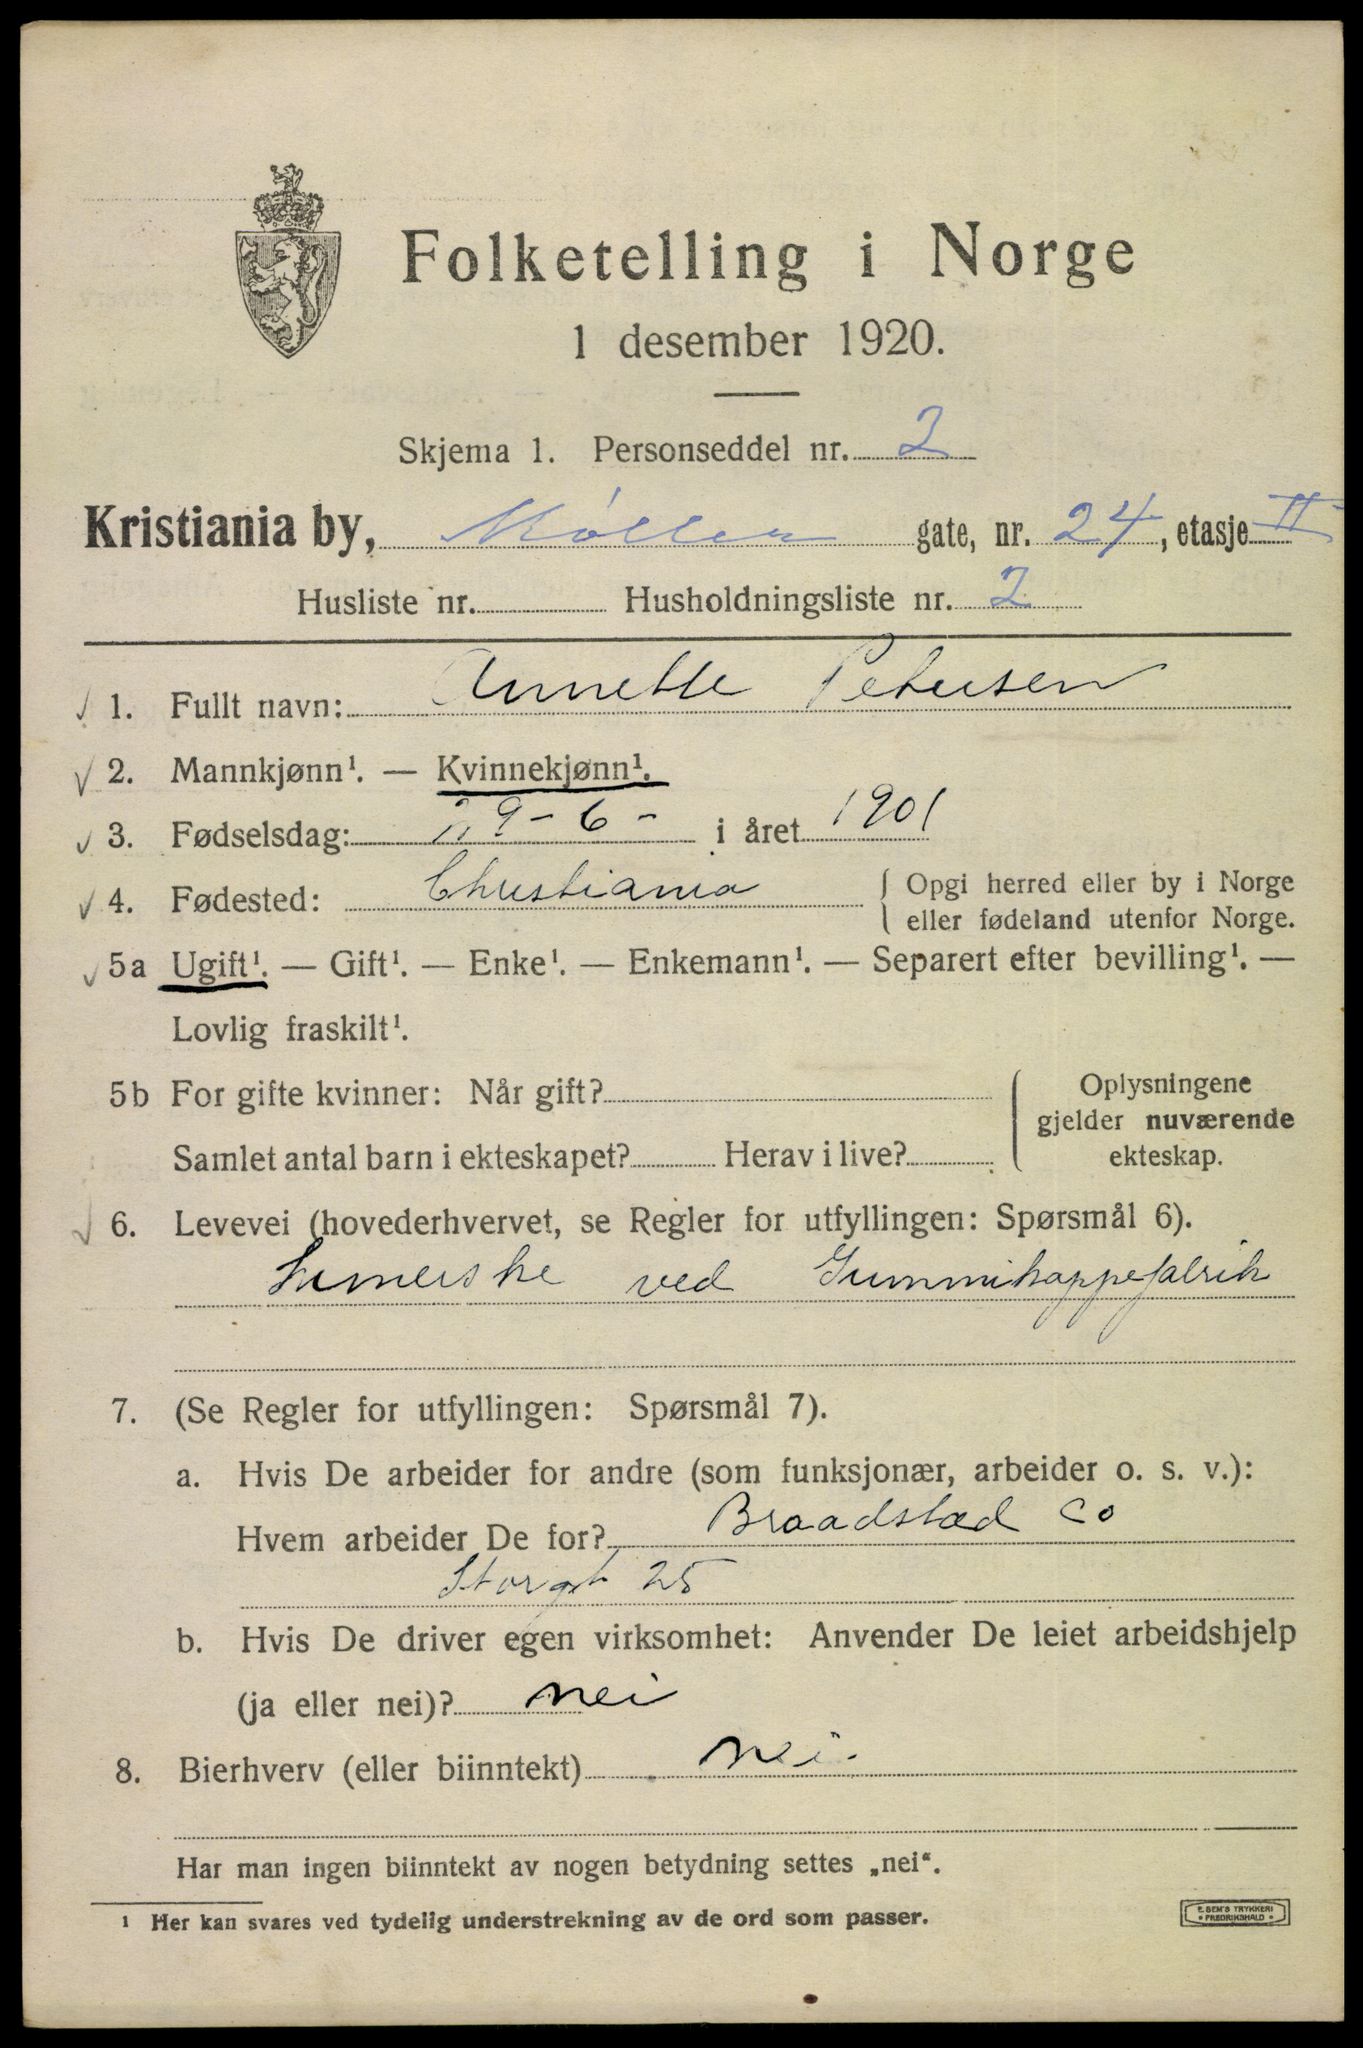 Folketelling i Norge
1 desember 1920.
Skjema 1. Personseddel nr. 2
Kristiania by, Møller gate, nr. 24, etasje II
Husliste nr. Husholdningsliste nr. 2
1. Fullt navn: Annette Petersen
2. Mannkjønn¹. — Kvinnekjønn¹.
3. Fødselsdag: 29-6- i året 1901
4. Fødested: Christiania { Opgi herred eller by i Norge
eller fødeland utenfor Norge.
5a Ugift¹. — Gift¹. — Enke¹. — Enkemann¹. — Separert efter bevilling¹. —
Lovlig fraskilt¹.
5b For gifte kvinner: Når gift?
Samlet antal barn i ekteskapet? Herav i live?
Oplysningene
gjelder nuværende
ekteskap.
6. Levevei (hovederhvervet, se Regler for utfyllingen: Spørsmål 6).
Limerske ved Gummikappefabrik
7. (Se Regler for utfyllingen: Spørsmål 7).
a. Hvis De arbeider for andre (som funksjonær, arbeider o. s. v.):
Hvem arbeider De for? Braadstad Co
Storgt 25
b. Hvis De driver egen virksomhet: Anvender De leiet arbeidshjelp
(ja eller nei)? nei
8. Bierhverv (eller biinntekt) nei.
Har man ingen biinntekt av nogen betydning settes „nei“.
¹ Her kan svares ved tydelig understrekning av de ord som passer.
E. SEM'S TRYKKERI
• FREDRIKSHALD •